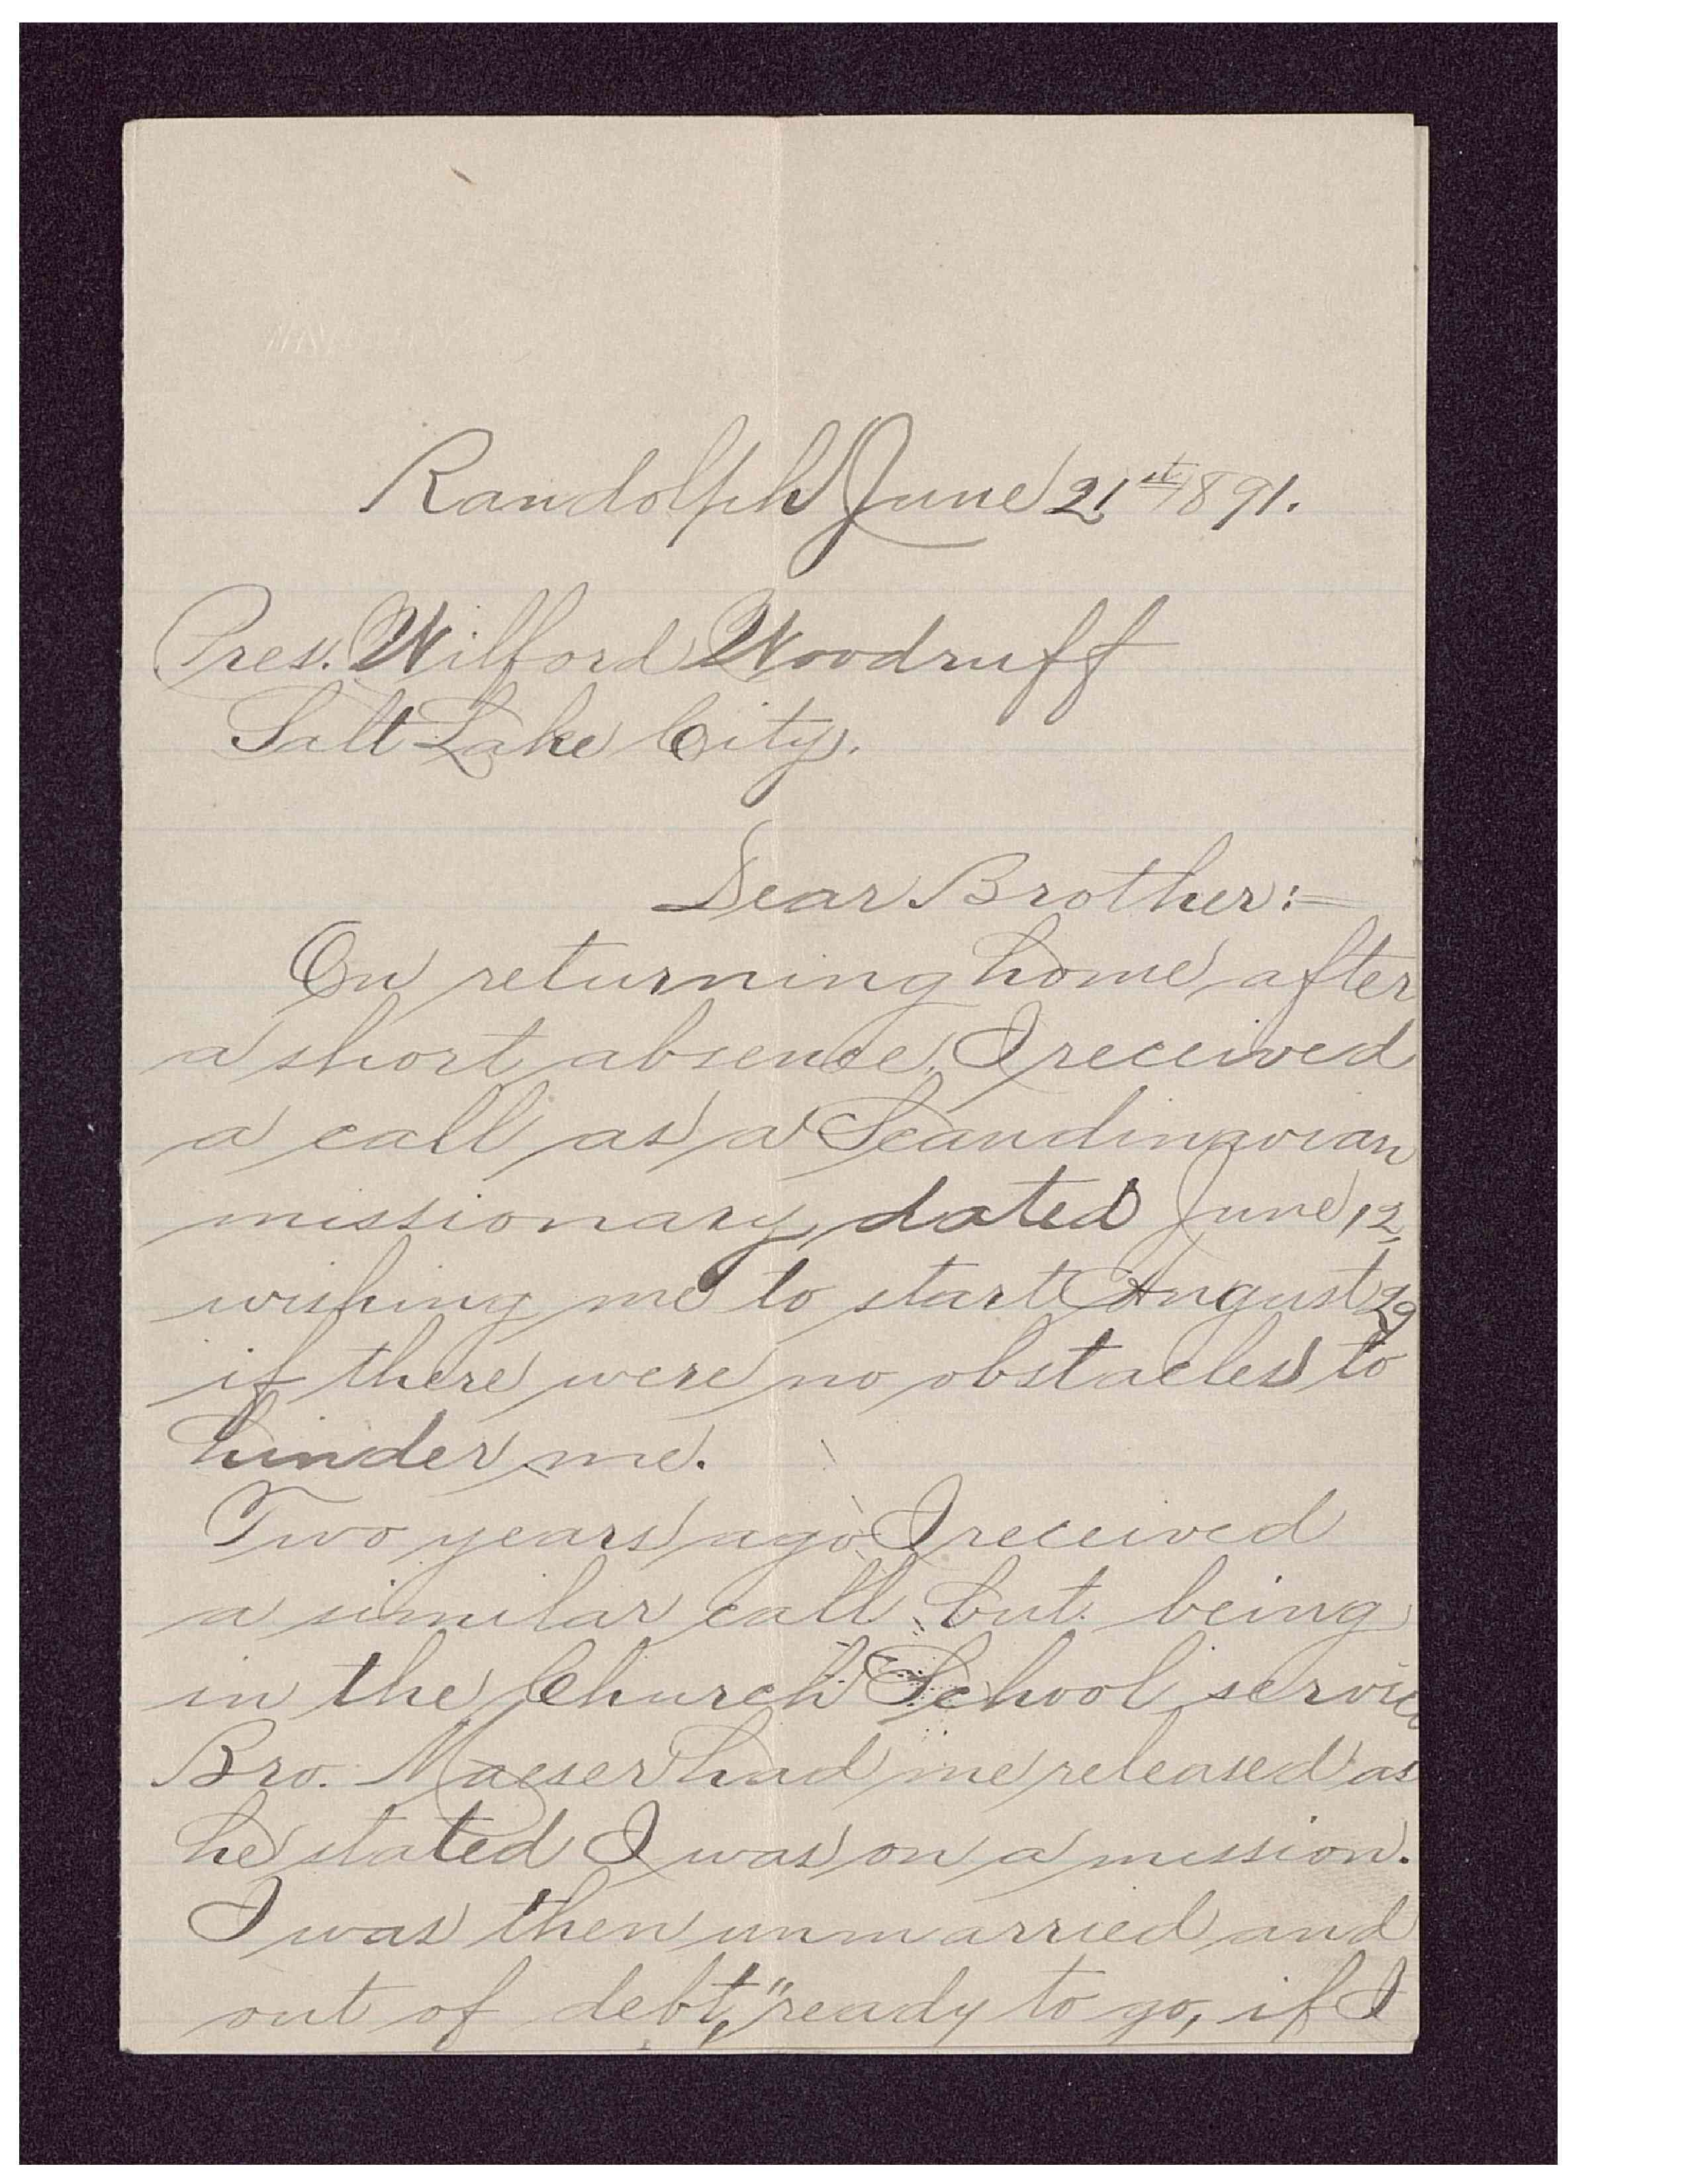 Randolph June 21st 1891.
Pres. Wilford Woodruff
Salt Lake City.
Dear Brother:=
On returning home, after
a short absence, I received
a call as a Scandinavian
missionary, dated June 12,
wishing me to start August 29
if there were no obstacles to
hinder me.
Two years ago I received
a similar call but being
in the Church School service
Bro. Maeser had me released as
he stated I was on a mission.
I was then unmarried and
out of debt, "ready to go, if I